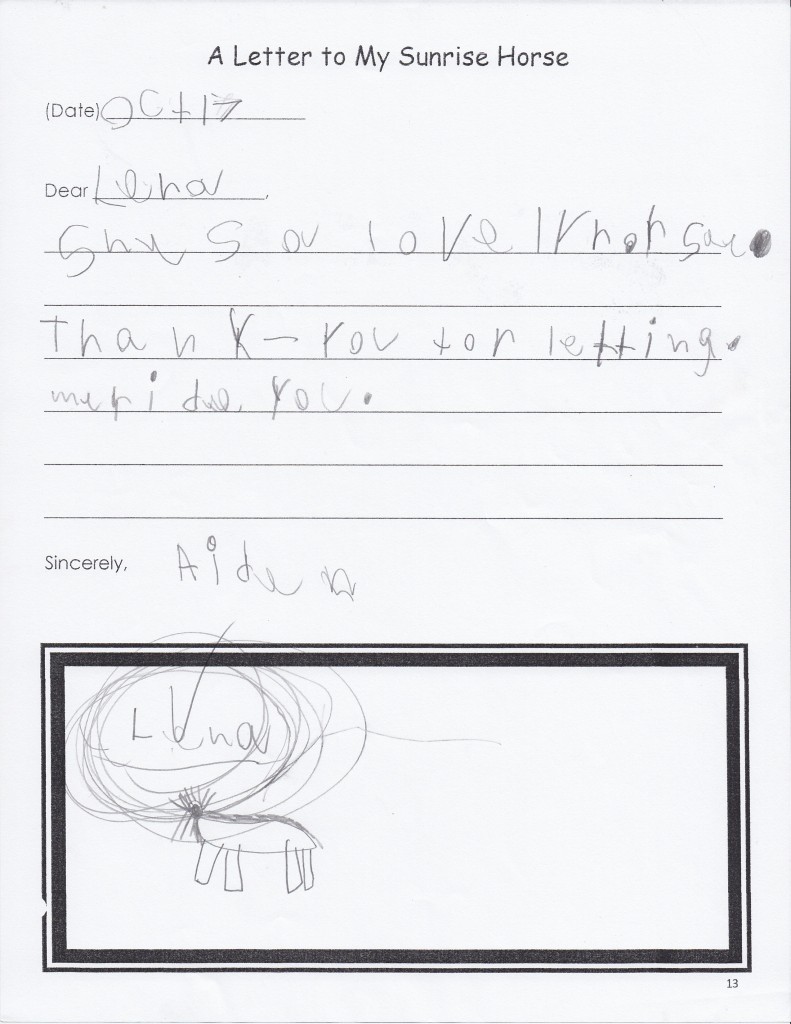 A Letter to My Sunrise Horse
(Date) Oct 17
Dear Lena,
a lovel
Thank-you for letting.
me ride you.
Sincerely, Aiden
Lena
13